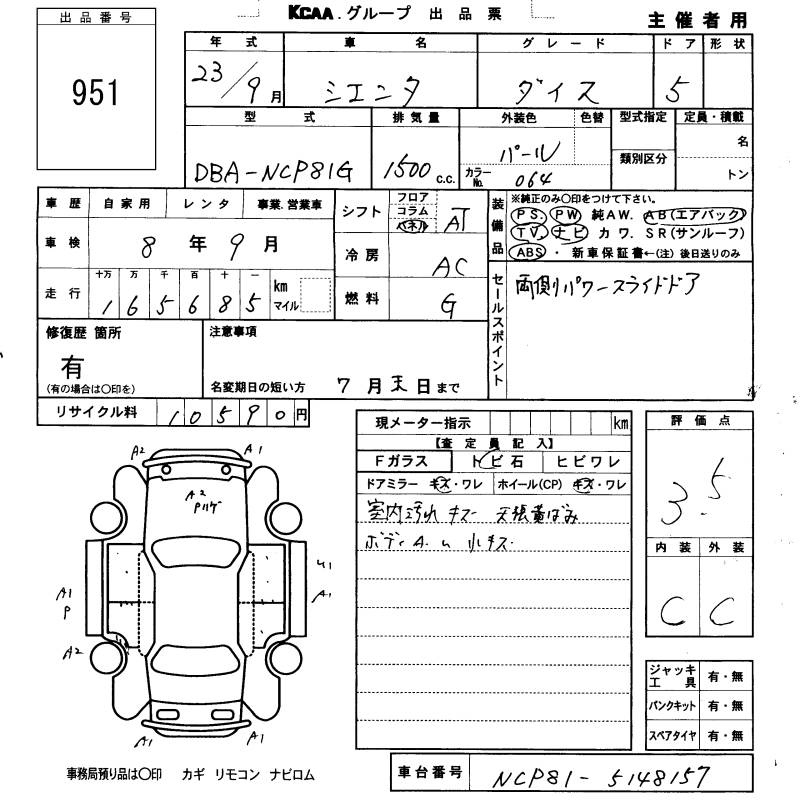 KCAA.グループ 出品票
主催者用
出品番号
951
年式 車名 グレード ドア 形状
23/9月 シエンタ ダイス 5
型式 排気量 外装色 色替 型式指定 定員・積載
DBA-NCP81G 1500 c.c. パール 名
類別区分
カラーNo. 064 トン
車歴 自家用 レンタ 事業.営業車
車検 8年9月
走行 十万 万 千 百 十 一 km マイル
165685
シフト フロア コラム パネル AT
冷房 AC
燃料 G
装備品
※純正のみ○印をつけて下さい。
PS. PW 純AW. AB(エアバック)
TV. ナビ カワ. SR(サンルーフ)
ABS・新車保証書←(注)後日送りのみ
セールスポイント
両側パワースライドドア
修復歴 箇所
有
(有の場合は○印を)
注意事項
名変期日の短い方 7月末日まで
リサイクル料 10590円
現メーター指示 km
【査定員記入】
Fガラス トビ石 ヒビワレ
ドアミラー キズ・ワレ ホイール(CP) キズ・ワレ
室内汚れ キズ 天張黄ばみ
ボディA.u小キズ
評価点
3.5
内装 外装
C C
ジャッキ工具 有・無
パンクキット 有・無
スペアタイヤ 有・無
A2 A1
A2
Pハゲ
A1
P
U1
A1
A2
A1 A1
事務局預り品は○印 カギ リモコン ナビロム
車台番号 NCP81-5148157